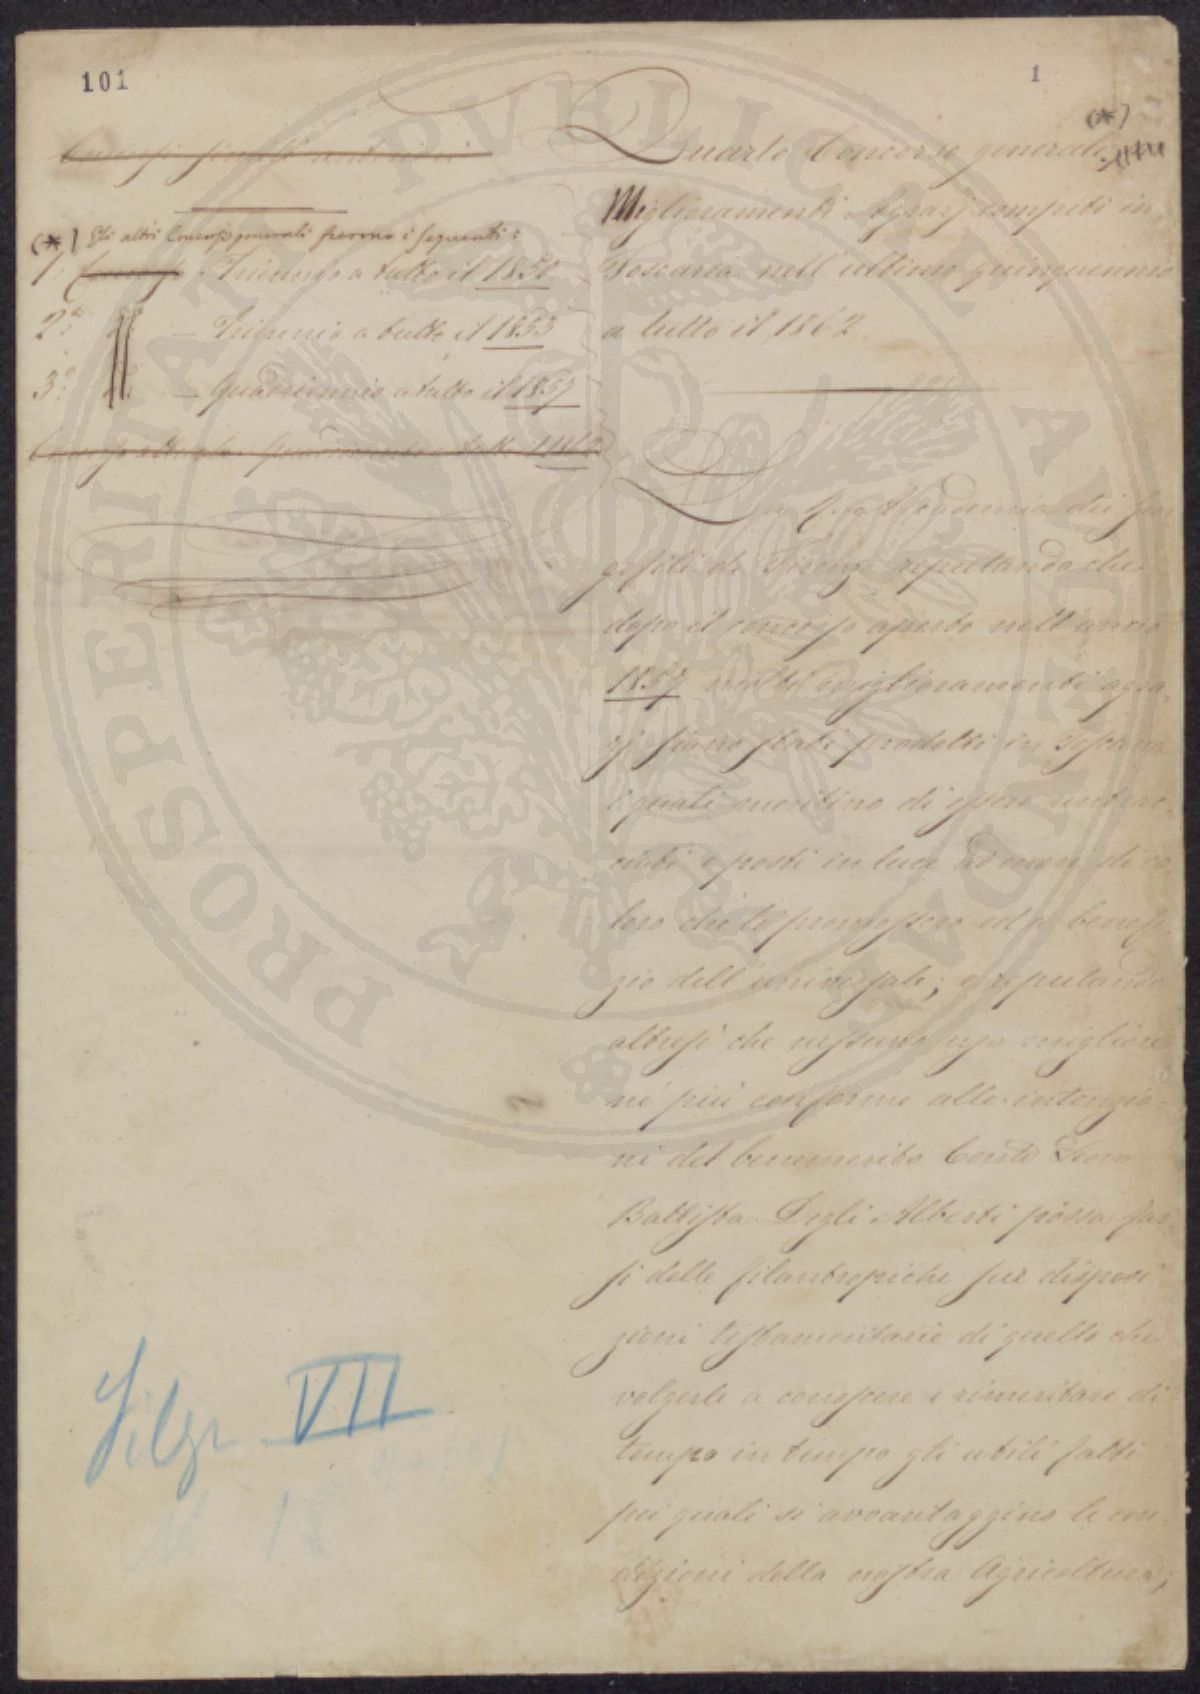 101
1
Concorsi generali anteriori
(*) Gli altri Concorsi generali furono i seguenti:
1.° Concorso Triennio a tutto il 1850
2.° Id. — Triennio a tutto il 1853
3.° Id. — Quadriennio a tutto il 1857
Concorso attuale Quinquennio a tutto il 1862
Filza VII
Quarto Concorso generale (*)
Miglioramenti Agrarj compiti in
Toscana nell'ultimo quinquennio
a tutto il 1862
La R.a Accademia dei Geor
gofili di Firenze reputando che
dopo il concorso aperto nell'anno
1857 molti miglioramenti agra-
rj siano stati prodotti in Toscana
i quali meritino di essere rintrac-
ciati e posti in luce ad onore di co-
loro che li promossero ed a benefi-
zio dell'universale; e reputando
altresì che nessuno uso migliore
né più conforme alle intenzio-
ni del benemerito Conte Leon
Battista Degli Alberti possa far-
si delle filantropiche sue disposi
zioni testamentarie di quello che
volgerle a conoscere e rimeritare di
tempo in tempo gli utili fatti
pei quali si avvantaggino le con-
dizioni della nostra Agricoltura;
PROSPERITATI PVBLICAE AVGENDAE